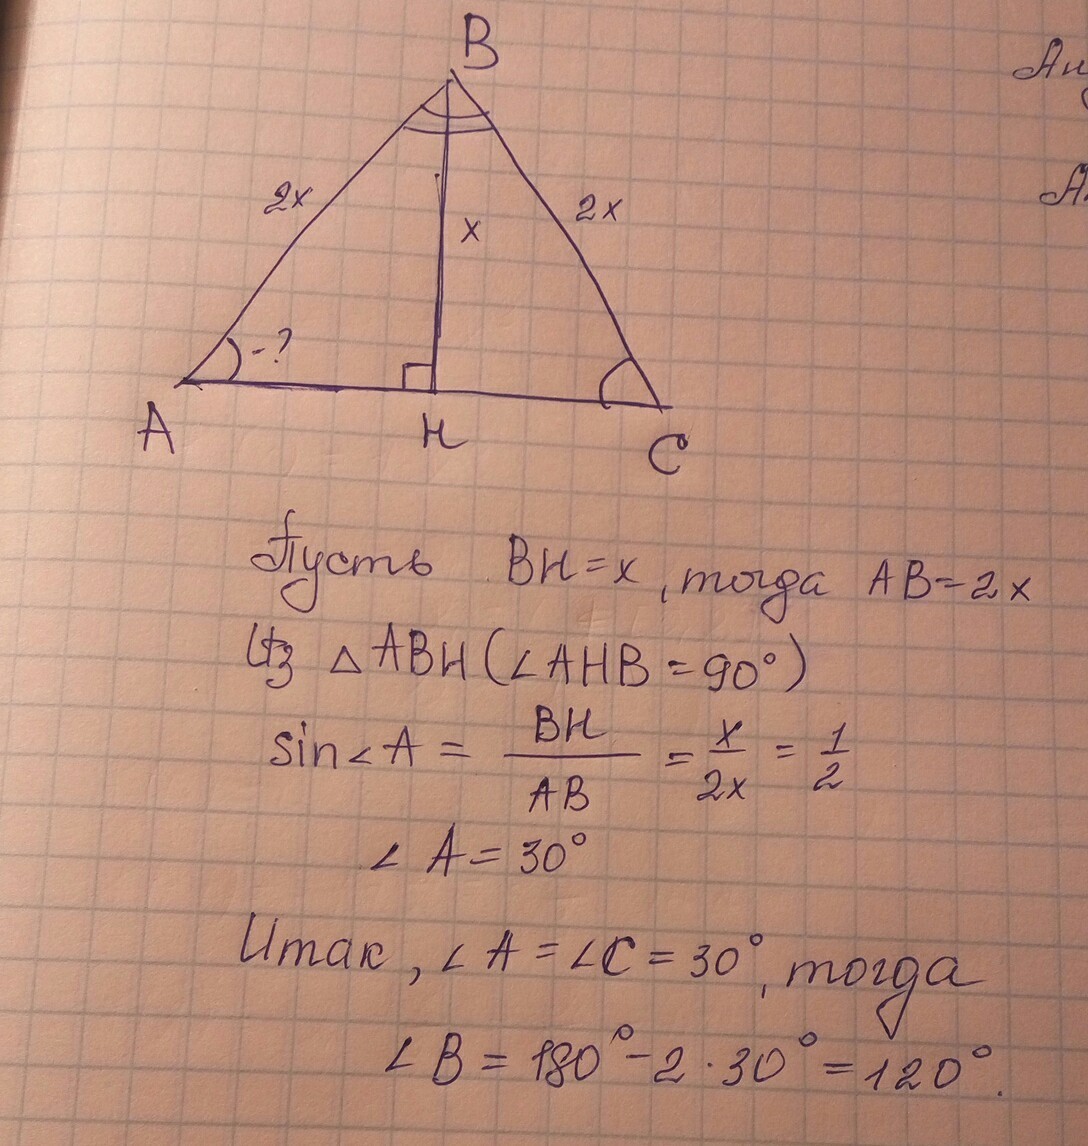 B
2x
2x
x
-?
A
H
C
Пусть BH=x, тогда AB=2x
Из △ABH(∠AHB=90°)
sin∠A = BH/AB = x/2x = 1/2
∠A=30°
Итак, ∠A=∠C=30°, тогда
∠B=180°-2·30°=120°.